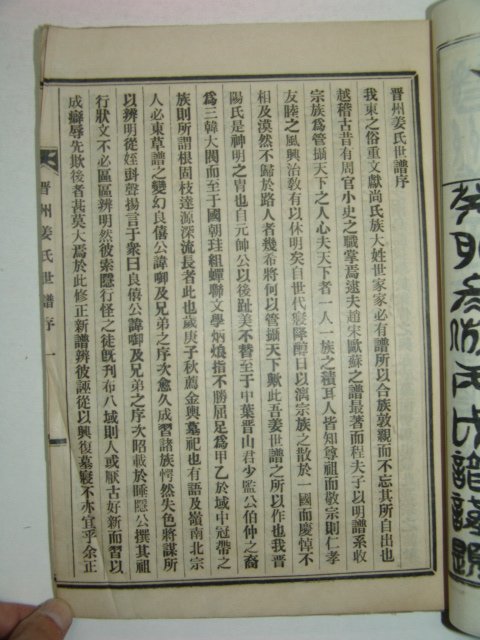 晋州姜氏世譜序
我東之俗重文獻尚氏族大姓世家家必有譜所以合族敦親而不忘其所自出也
越稽古昔有周官小史之職掌焉逮夫趙宋歐蘇之譜最著而程夫子以明譜系收
宗族爲管攝天下之人心夫天下者一人一族之積耳人皆知尊祖而敬宗則仁孝
友睦之風興治教有以休明矣自世代寢降醇日以漓宗族之散於一國而慶悼不
相及漠然不歸於路人者幾希將何以管攝天下歟此吾姜世譜之所以作也我晋
陽氏是神明之冑也自元帥公以後趾美不替至于中葉晋山君少監公伯仲之裔
爲三韓大閥而至于國朝珪組蟬聯文學炳煥指不勝屈足爲甲乙於域中冠帶之
族則所謂根固枝達源深流長者此也歲庚子秋薦金輿墓祀也有語及嶺南北宗
人必東草譜之變幻良僖公諱卿及兄弟之序次愈久成習諸族愕然失色將謀所
以辨明從姪 聲揚言于衆曰良僖公諱卿及兄弟之序次昭載於睡隱公撰其祖
行狀文不必區區辨明然彼索隱行怪之徒旣刊布八域則人或厭古好新而習以
成癖辱先欺後者甚莫大焉於此修正新譜辨彼誣從以興復墓寢不亦宜乎余正
晋州姜氏世譜序
一